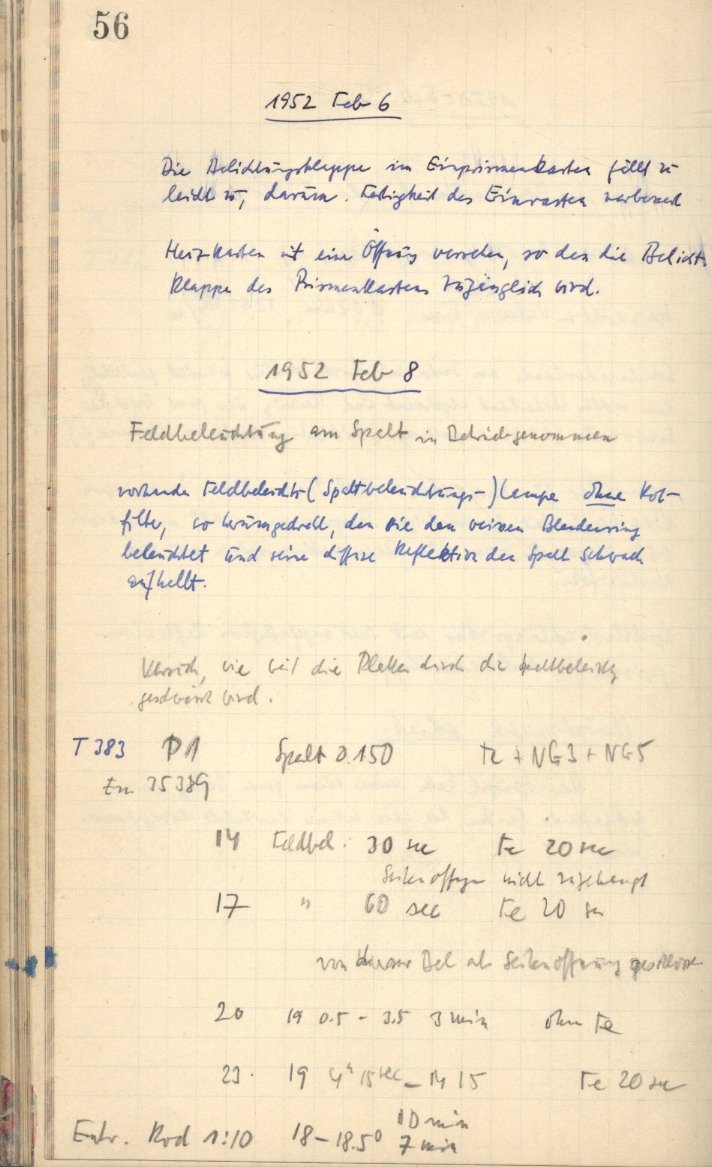 56
1952 Feb 6
Die Belichtungsklappe im Einprismenkasten fällt zu
leicht zu, darum. Festigkeit des Einrasten verbessert
Heizkasten mit eine Öffnung versehen, so dass die Belicht.
klappe des Prismenkastens zugänglich wird.
1952 Feb 8
Feldbeleuchtung am Spalt in Betrieb genommen
vorhandene Feldbeleucht-(Spaltbeleuchtungs-)lampe ohne Rot-
filter, so herumgedreht, dass sie den weissen Blendenring
beleuchtet und seine diffuse Reflektion den Spalt schwach
aufhellt.
Versuch, wie weit die Platten durch die Spaltbeleuchtg
geschwärzt wird.
T 383 P1 Spalt 0.150 Fe + NG3 + NG5
Em 35389
14 Feldbel. 30 sec Fe 20 sec
Seitenöffnung nicht zugehängt
17 " 60 sec Fe 20 sec
von dieser Bel ab Seitenöffnung geschlossen
20 19 0.5 - 3.5 3 min ohne Fe
23. 19 4m 15sec - 14 15 Fe 20 sec
Entw. Rod 1:10 18-18.5° 10 min
7 min